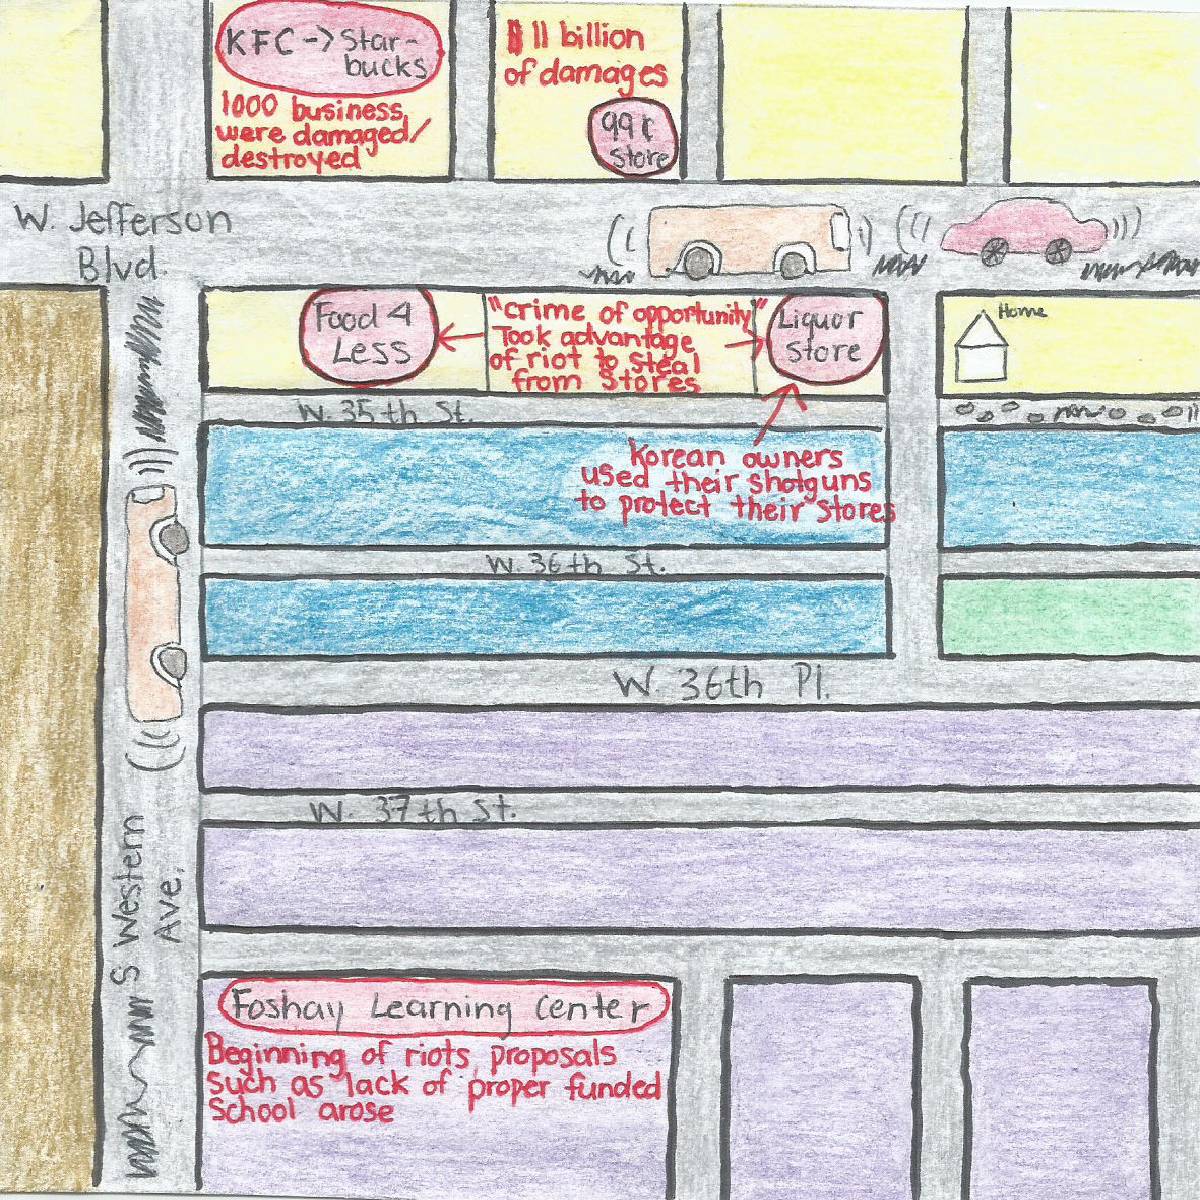 KFC -> Star-
bucks
1000 business
were damaged/
destroyed
$ 11 billion
of damages
99¢
Store
W. Jefferson
Blvd.
Food 4
Less
"crime of opportunity"
Took advantage
of riot to steal
from stores
Liquor
Store
Home
W. 35th St.
Korean owners
used their shotguns
to protect their stores
W. 36th St.
W. 36th Pl.
W. 37th St.
S Western
Ave.
Foshay Learning Center
Beginning of riots, proposals
such as lack of proper funded
school arose